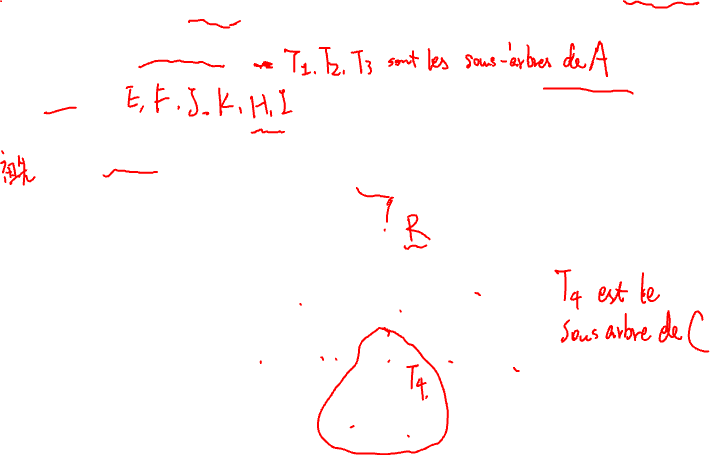 T1, T2, T3 sont les sous-arbres de A
E, F, J, K, H, I
祖先
? R
T4 est le
sous arbre de C
T4